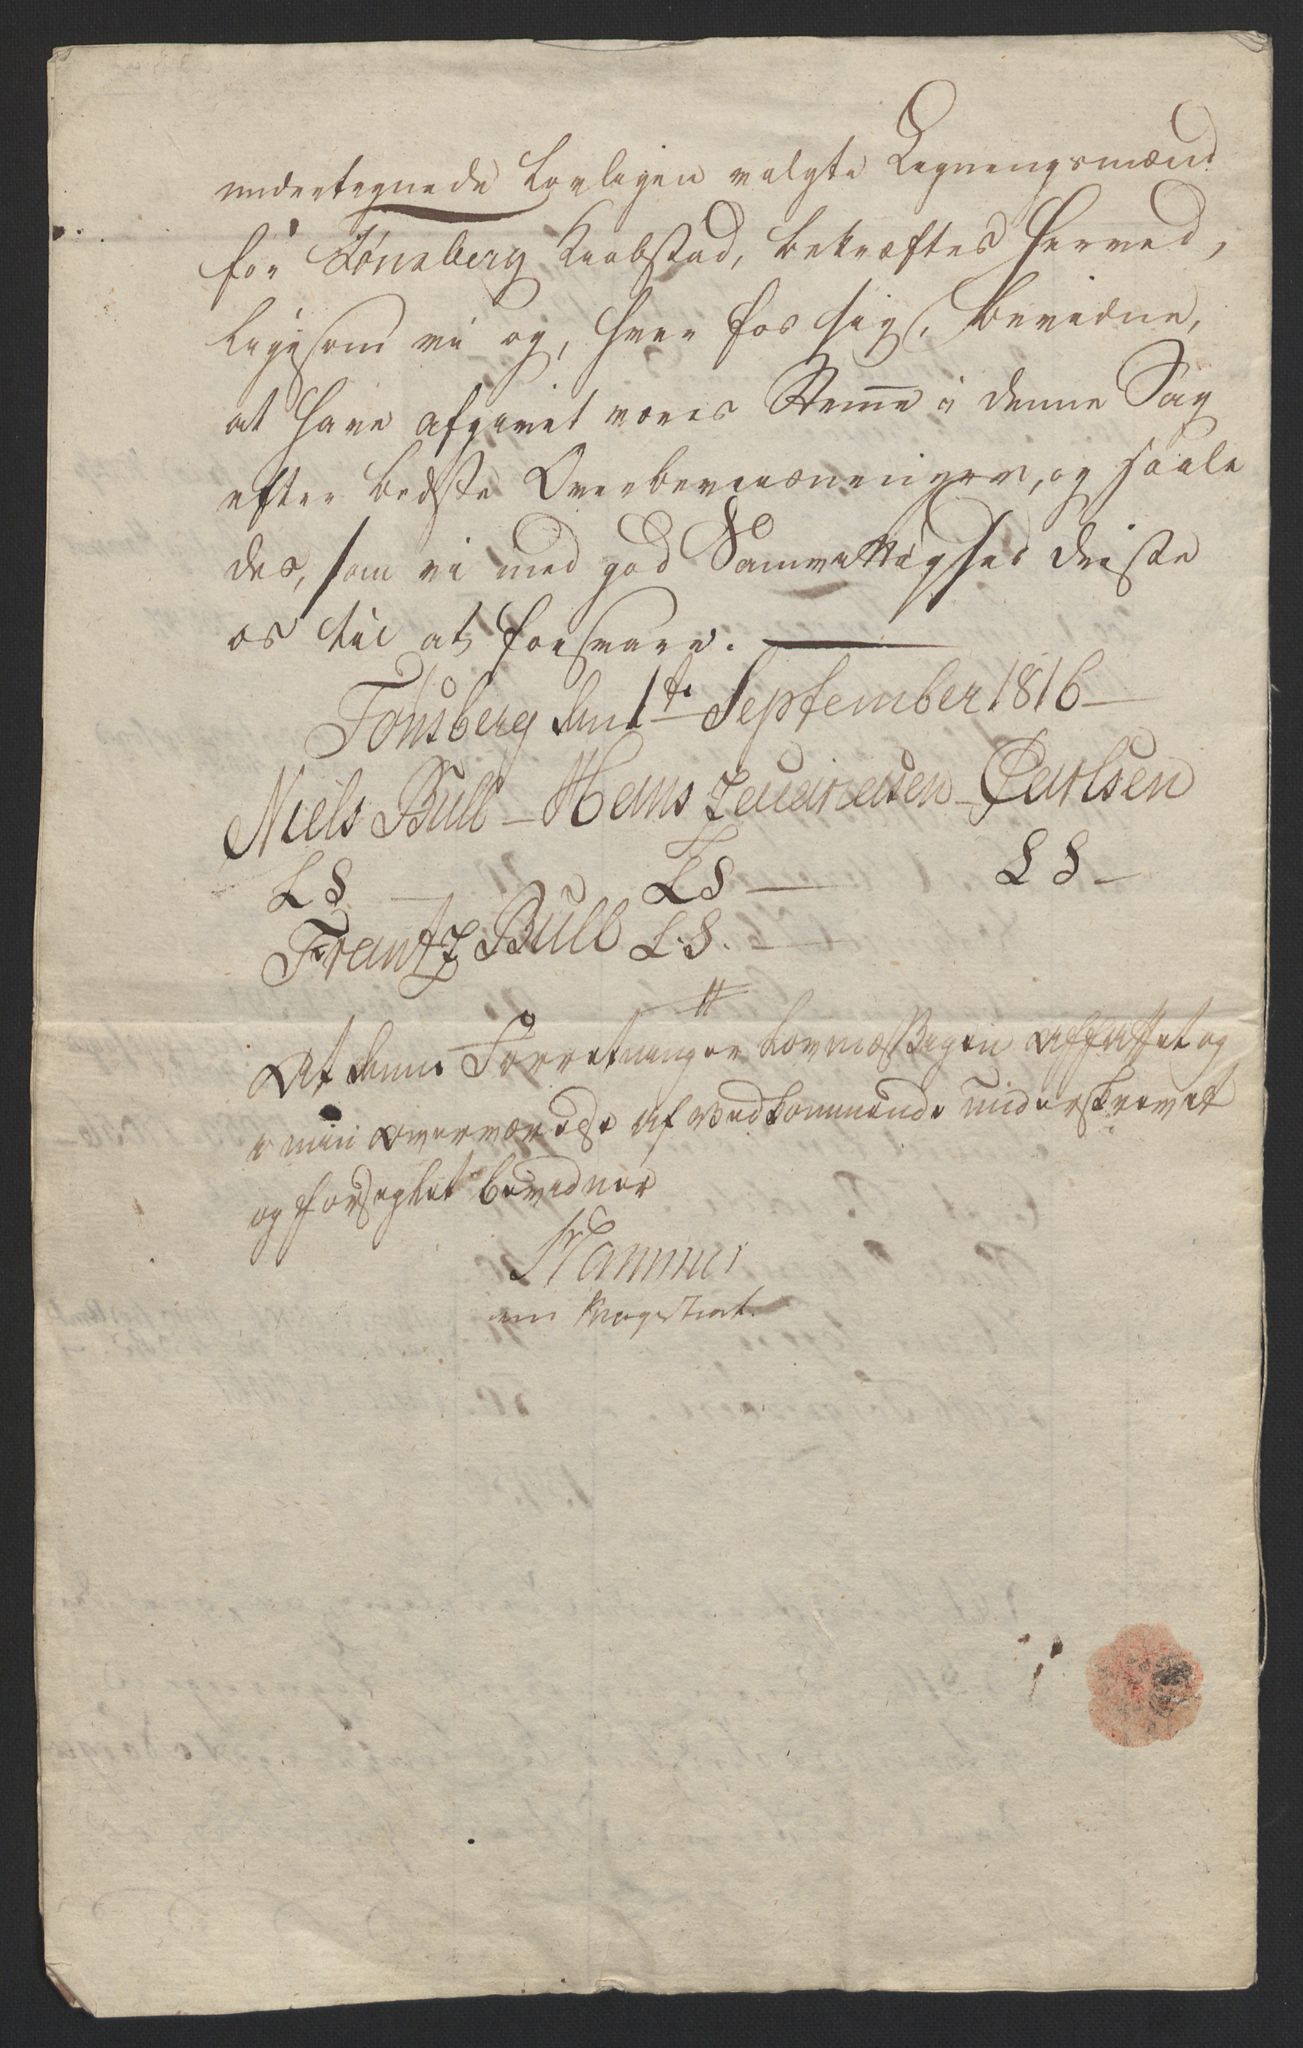 undertegnede Lovligen valgte Ligningsmænd
for Tønsberg Kiøbstad, bekræftes herved,
ligesom vi og, hver for sig, bevidne,
at have afgivet vores Stem̅e i denne Sag
efter bedste Overbeviisninger, og saale
des, som vi med god Samvittighed driste
os til at forsvare.
Tønsberg den 1te September 1816
Niels Bull - Hans - Carlsen
L S L S L S
Frantz Bull L. S.
At denne Forretning er Lovmæssigen affattet og
i min Overværelse af vedkommende underskrevet
og forseglet bevidner
Hammer
const. Magistrat